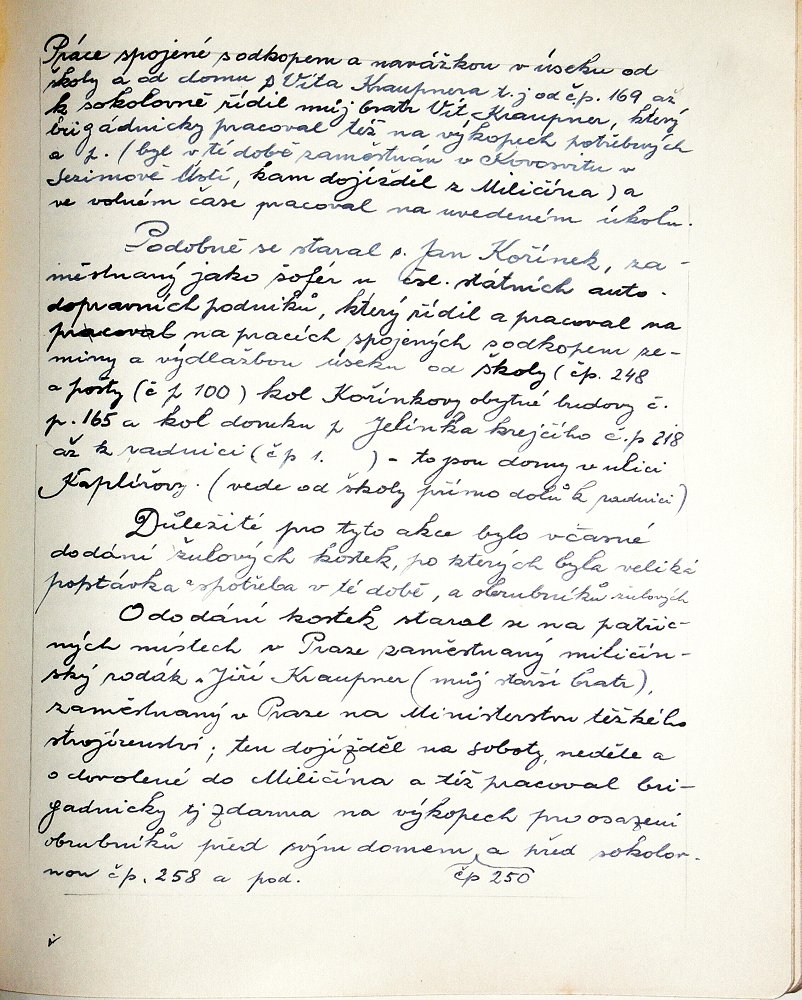 Práce spojené s odkopem a navážkou v úseku od
školy a od domu p Víta Kraupnera t. j od čp. 169 až
k sokolovně řídil můj bratr Vít Kraupner, který
brigádnicky pracoval též na výkopech potřebných
a p. (byl v té době zaměstnán v Kovosvitu v
Sezimově Ústí, kam dojížděl z Miličína) a
ve volném čase pracoval na uvedeném úkolu.
Podobně se staral p. Jan Kořínek, za-
městnaný jako šofér u čsl. státních auto-
dopravních podniků, který řídil a pracoval na
pracoval na pracích spojených s odkopem ze-
miny a výdlažbou úseku od školy (čp. 248
a pošty (č p 100) kol Kořínkovy obytné budovy č.
p. 165 a kol domku p Jelínka krejčího č. p 218
až k radnici (č p 1. ) - to jsou domy v ulici
Kaplířovy. (vede od školy přímo dolů k radnici)
Důležité pro tyto akce bylo včasné
dodání žulových kostek, po kterých byla veliká
poptávka a spotřeba v té době, a obrubníků žulových
O dodání kostek staral se na patřič-
ných místech v Praze zaměstnaný miličín-
ský rodák Jiří Kraupner (můj starší bratr),
zaměstnaný v Praze na Ministerstvu těžkého
strojírenství; ten dojížděl na soboty, neděle a
o dovolené do Miličína a též pracoval bri-
gadnicky tj zdarma na výkopech pro osazení
obrubníků před svým domem a před sokolov-
nou čp. 258 a pod. čp 250